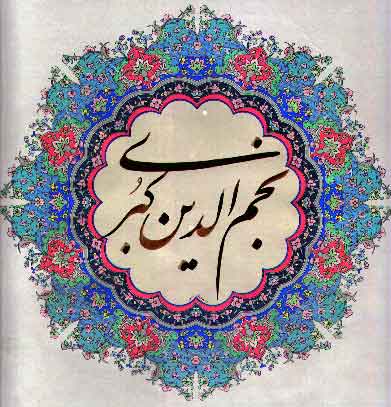 نجم الدین کبری